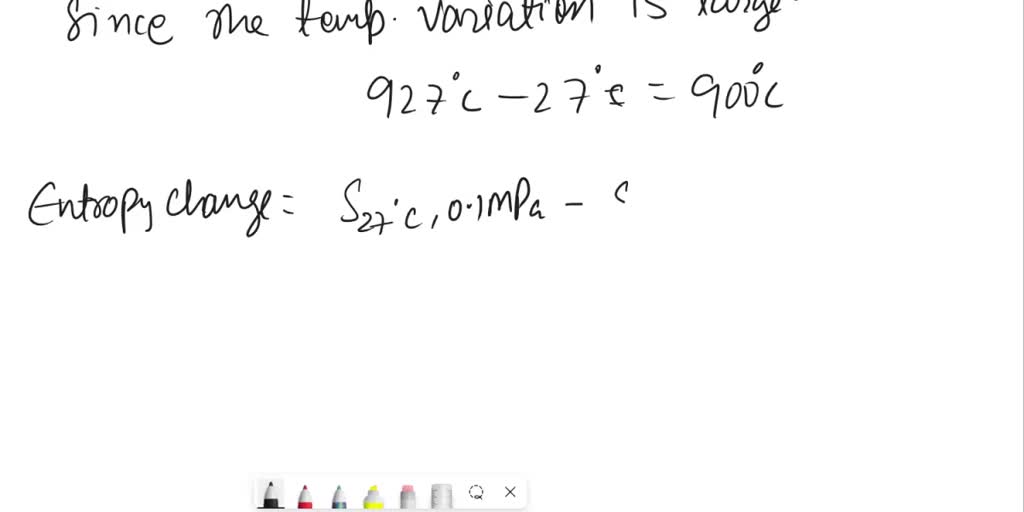 Since the temp. variation is large
927°C - 27°C = 900°C
Entropy change = S27°C, 0.1MPa - S